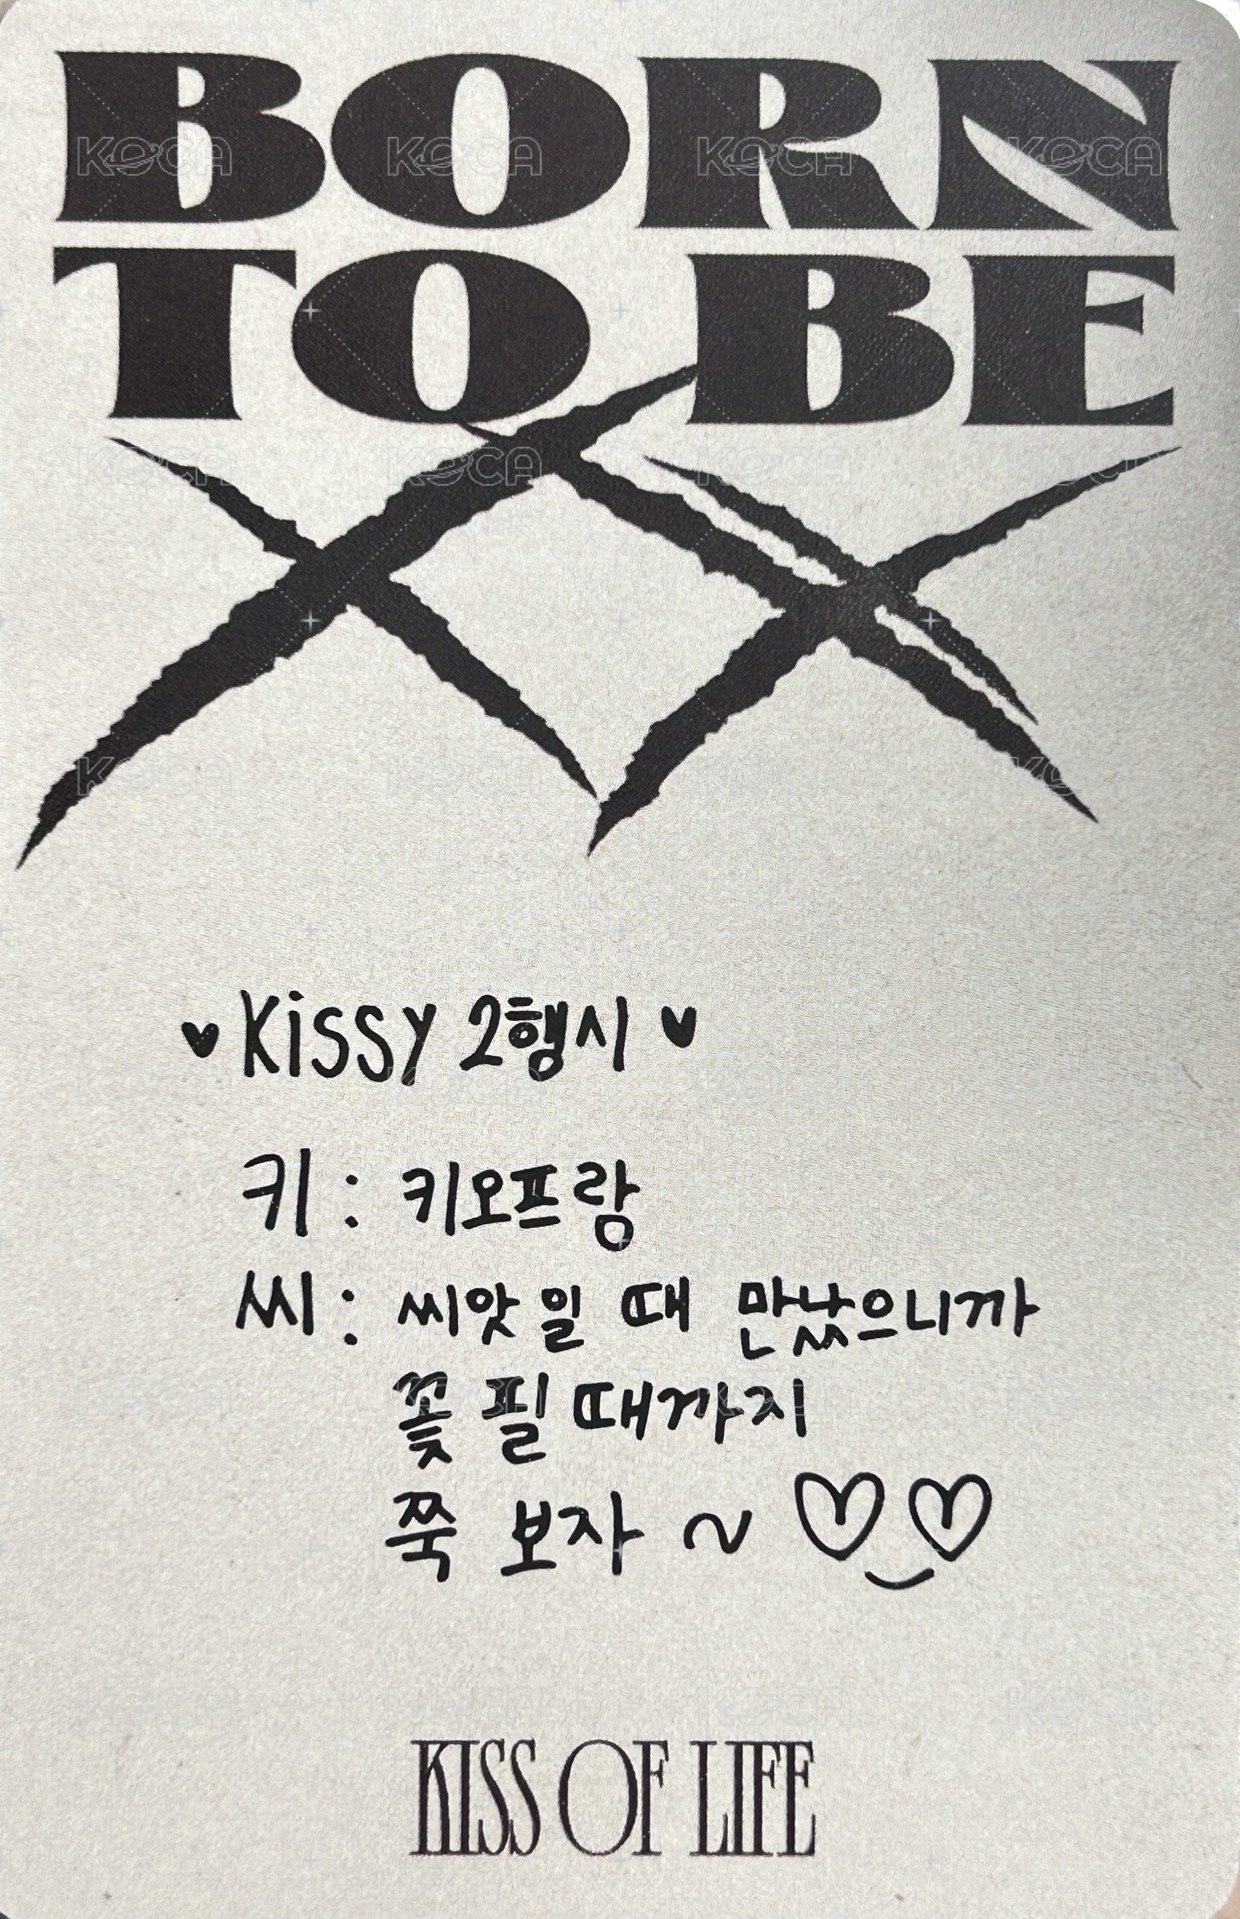 BORN
TO BE
XX
♥ Kissy 2행시 ♥
키 : 키오프랑
씨 : 씨앗일 때 만났으니까
꽃 필 때까지
쭉 보자 ~ ♡♡
KISS OF LIFE
KOCA KOCA KOCA KOCA
KOCA KOCA KOCA KOCA
KOCA KOCA KOCA KOCA